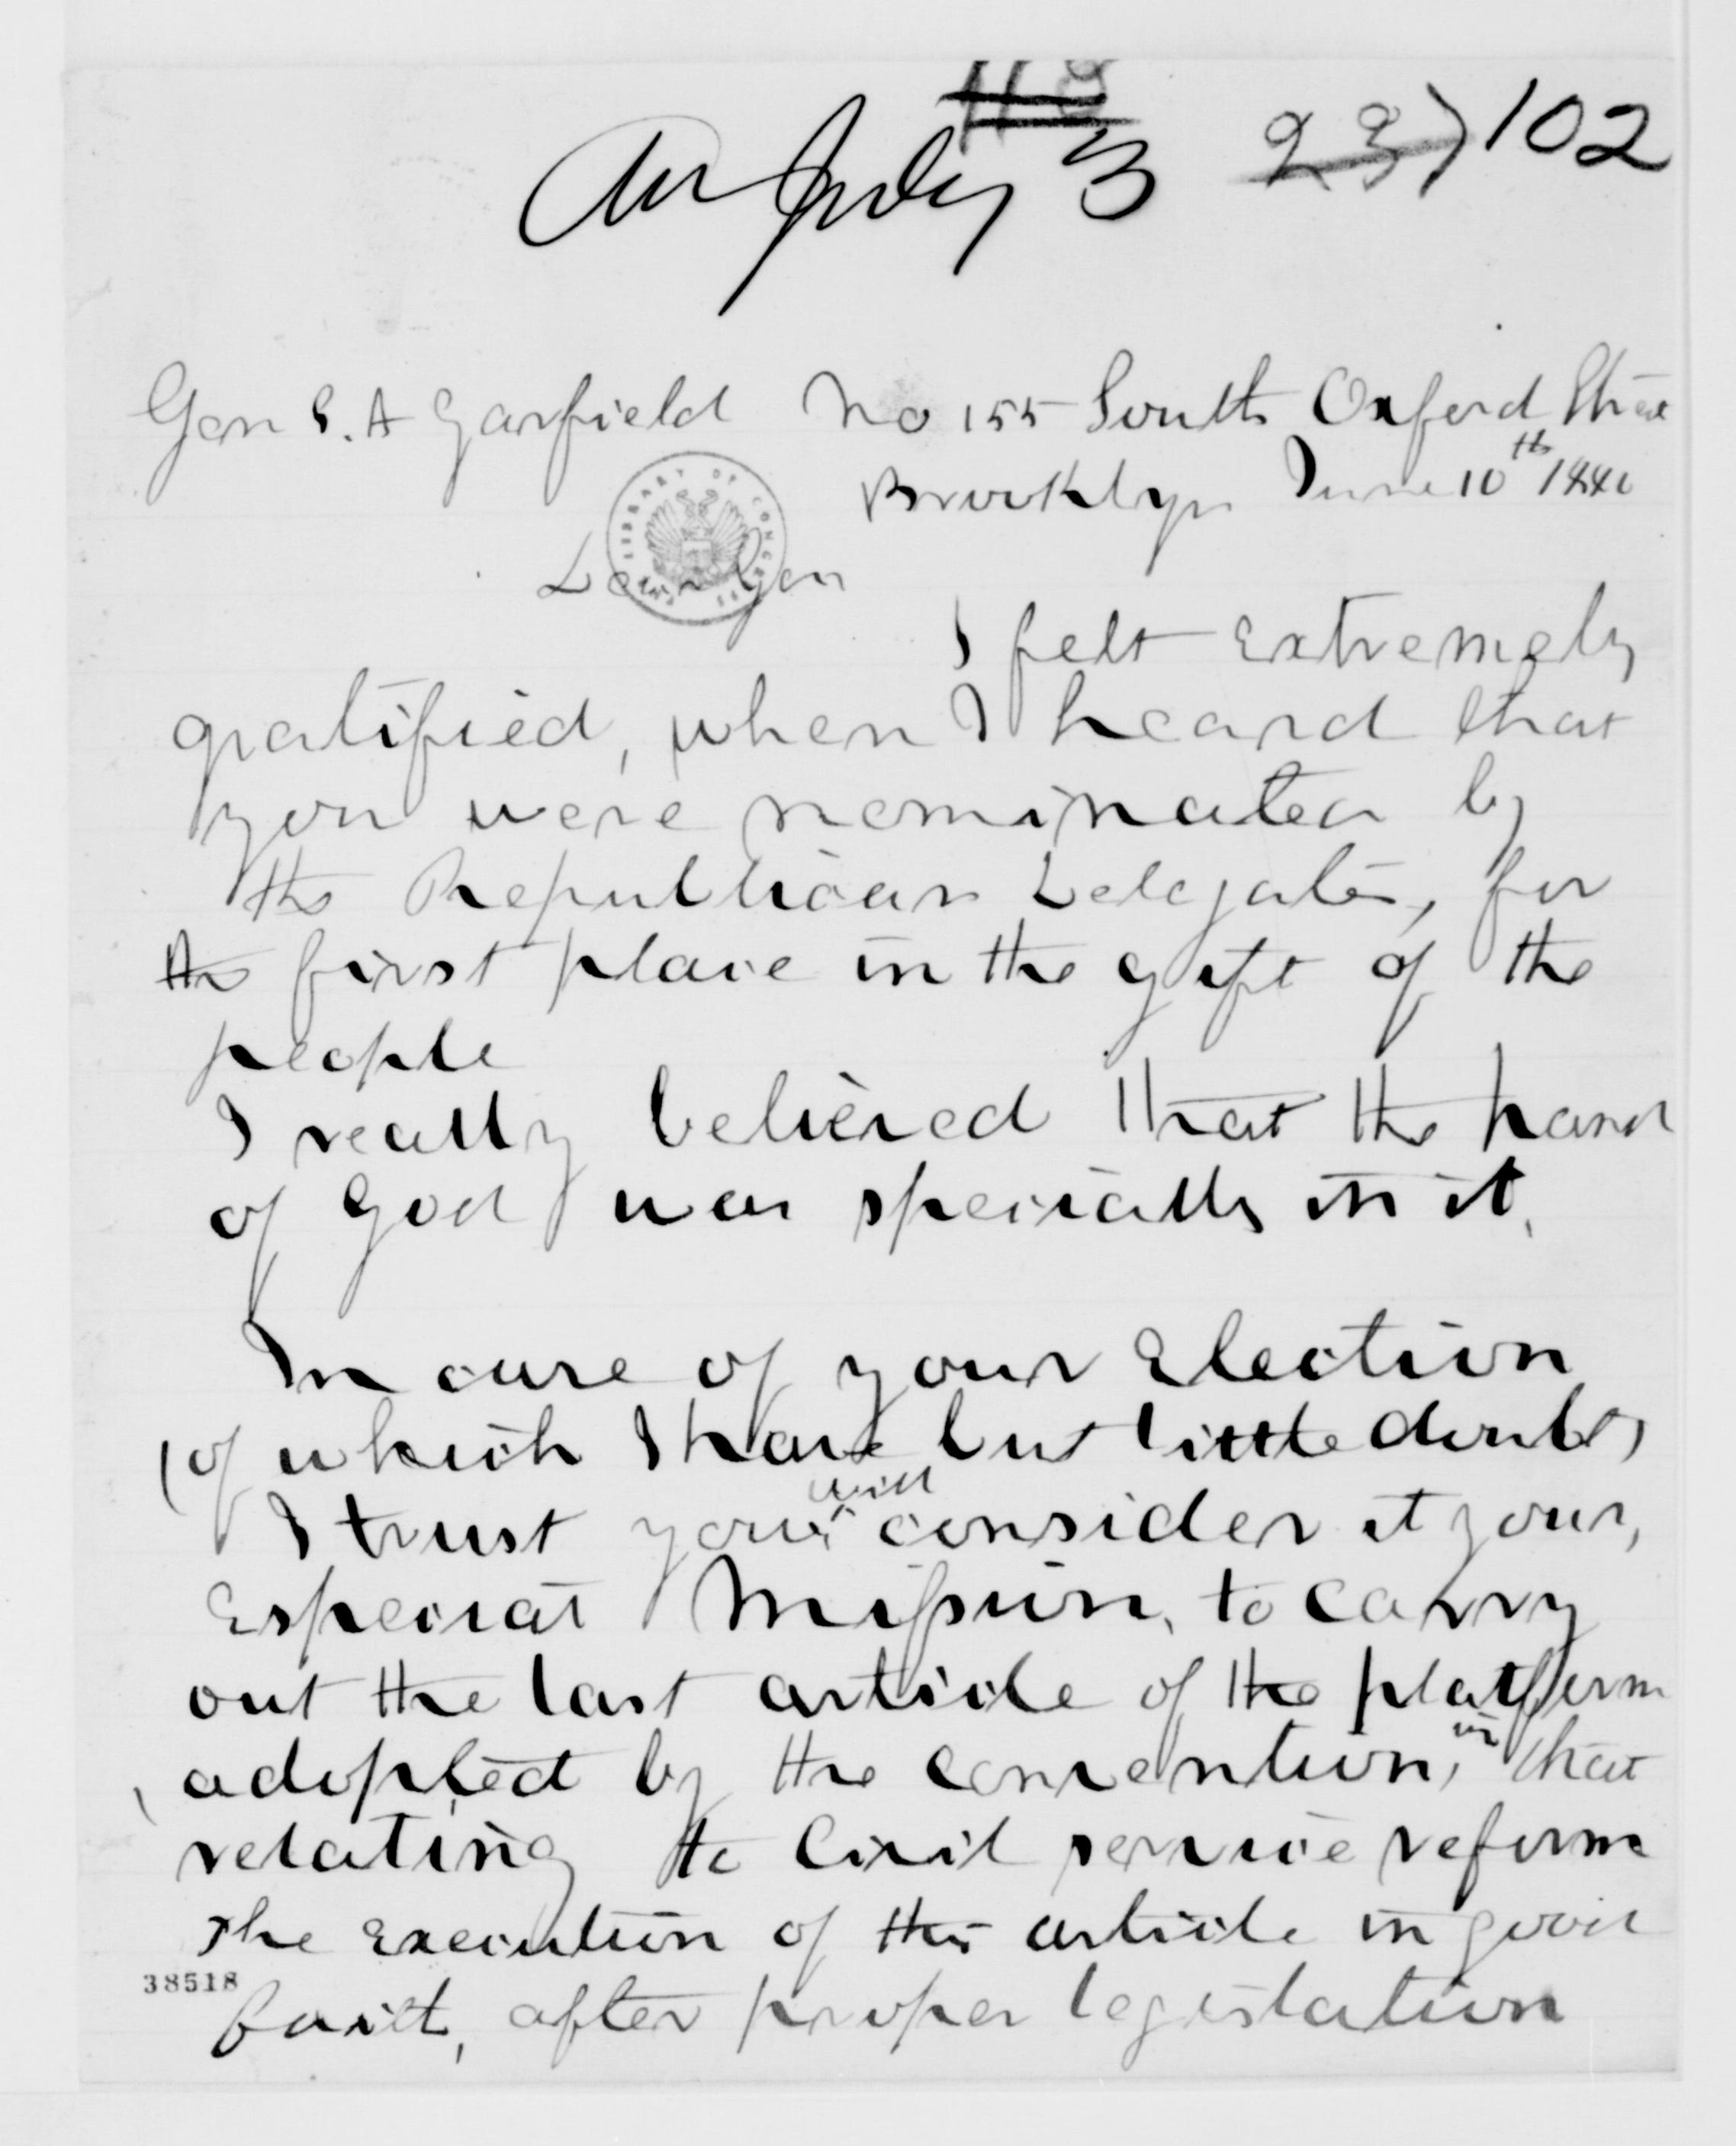 An July 3 102
Gen J. A Garfield No 155 South Oxford Street
Brooklyn June 10th 1880
LIBRARY OF CONGRESS
Dear Gen
I felt extremely
gratified, when I heard that
you were nominated by
the Republican Delegates, for
the first place in the gift of the
people
I really believed that the hand
of God was specially in it.
In case of your Election
(of which I have but little doubt)
I trust you will consider it your,
Especial Mission, to carry
out the last article of the platform
adopted by the convention, in that
relating to Civil service reform
The execution of this article in good
38518
faith, after proper legislation